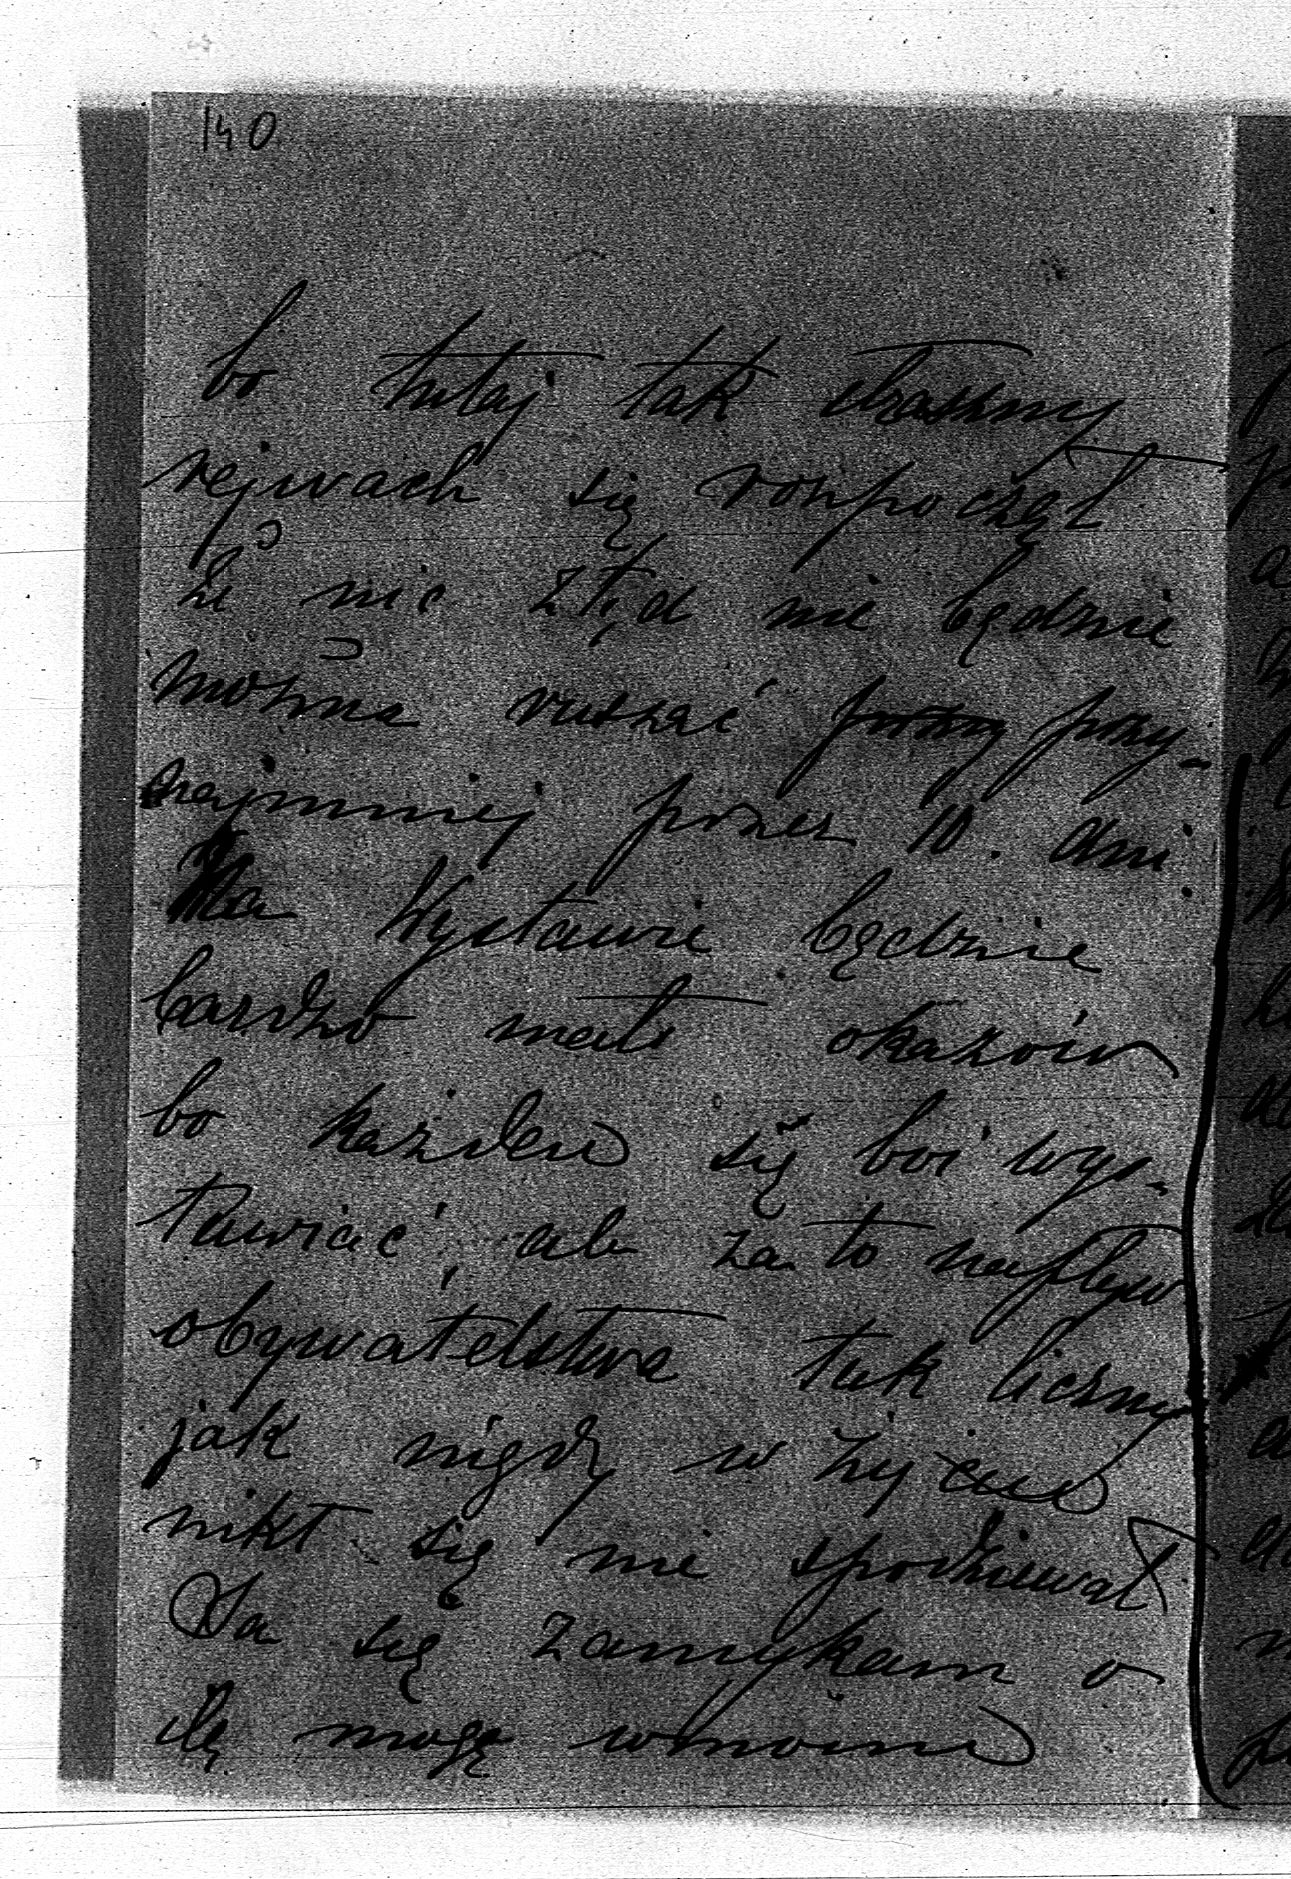 140
bo tutaj tak straszny
rejwach się rozpoczął
że nic ztąd nie będzie
można ruszać przy-
najmniej przez 10. dni.
Na Wystawie będzie
bardzo mało okazów
bo każden się boi wys-
tawiać, ale za to napływ
obywatelstwa tak liczny
jak nigdy w życiu
nikt się nie spodziewał
Ja się zamykam o
ile mogę